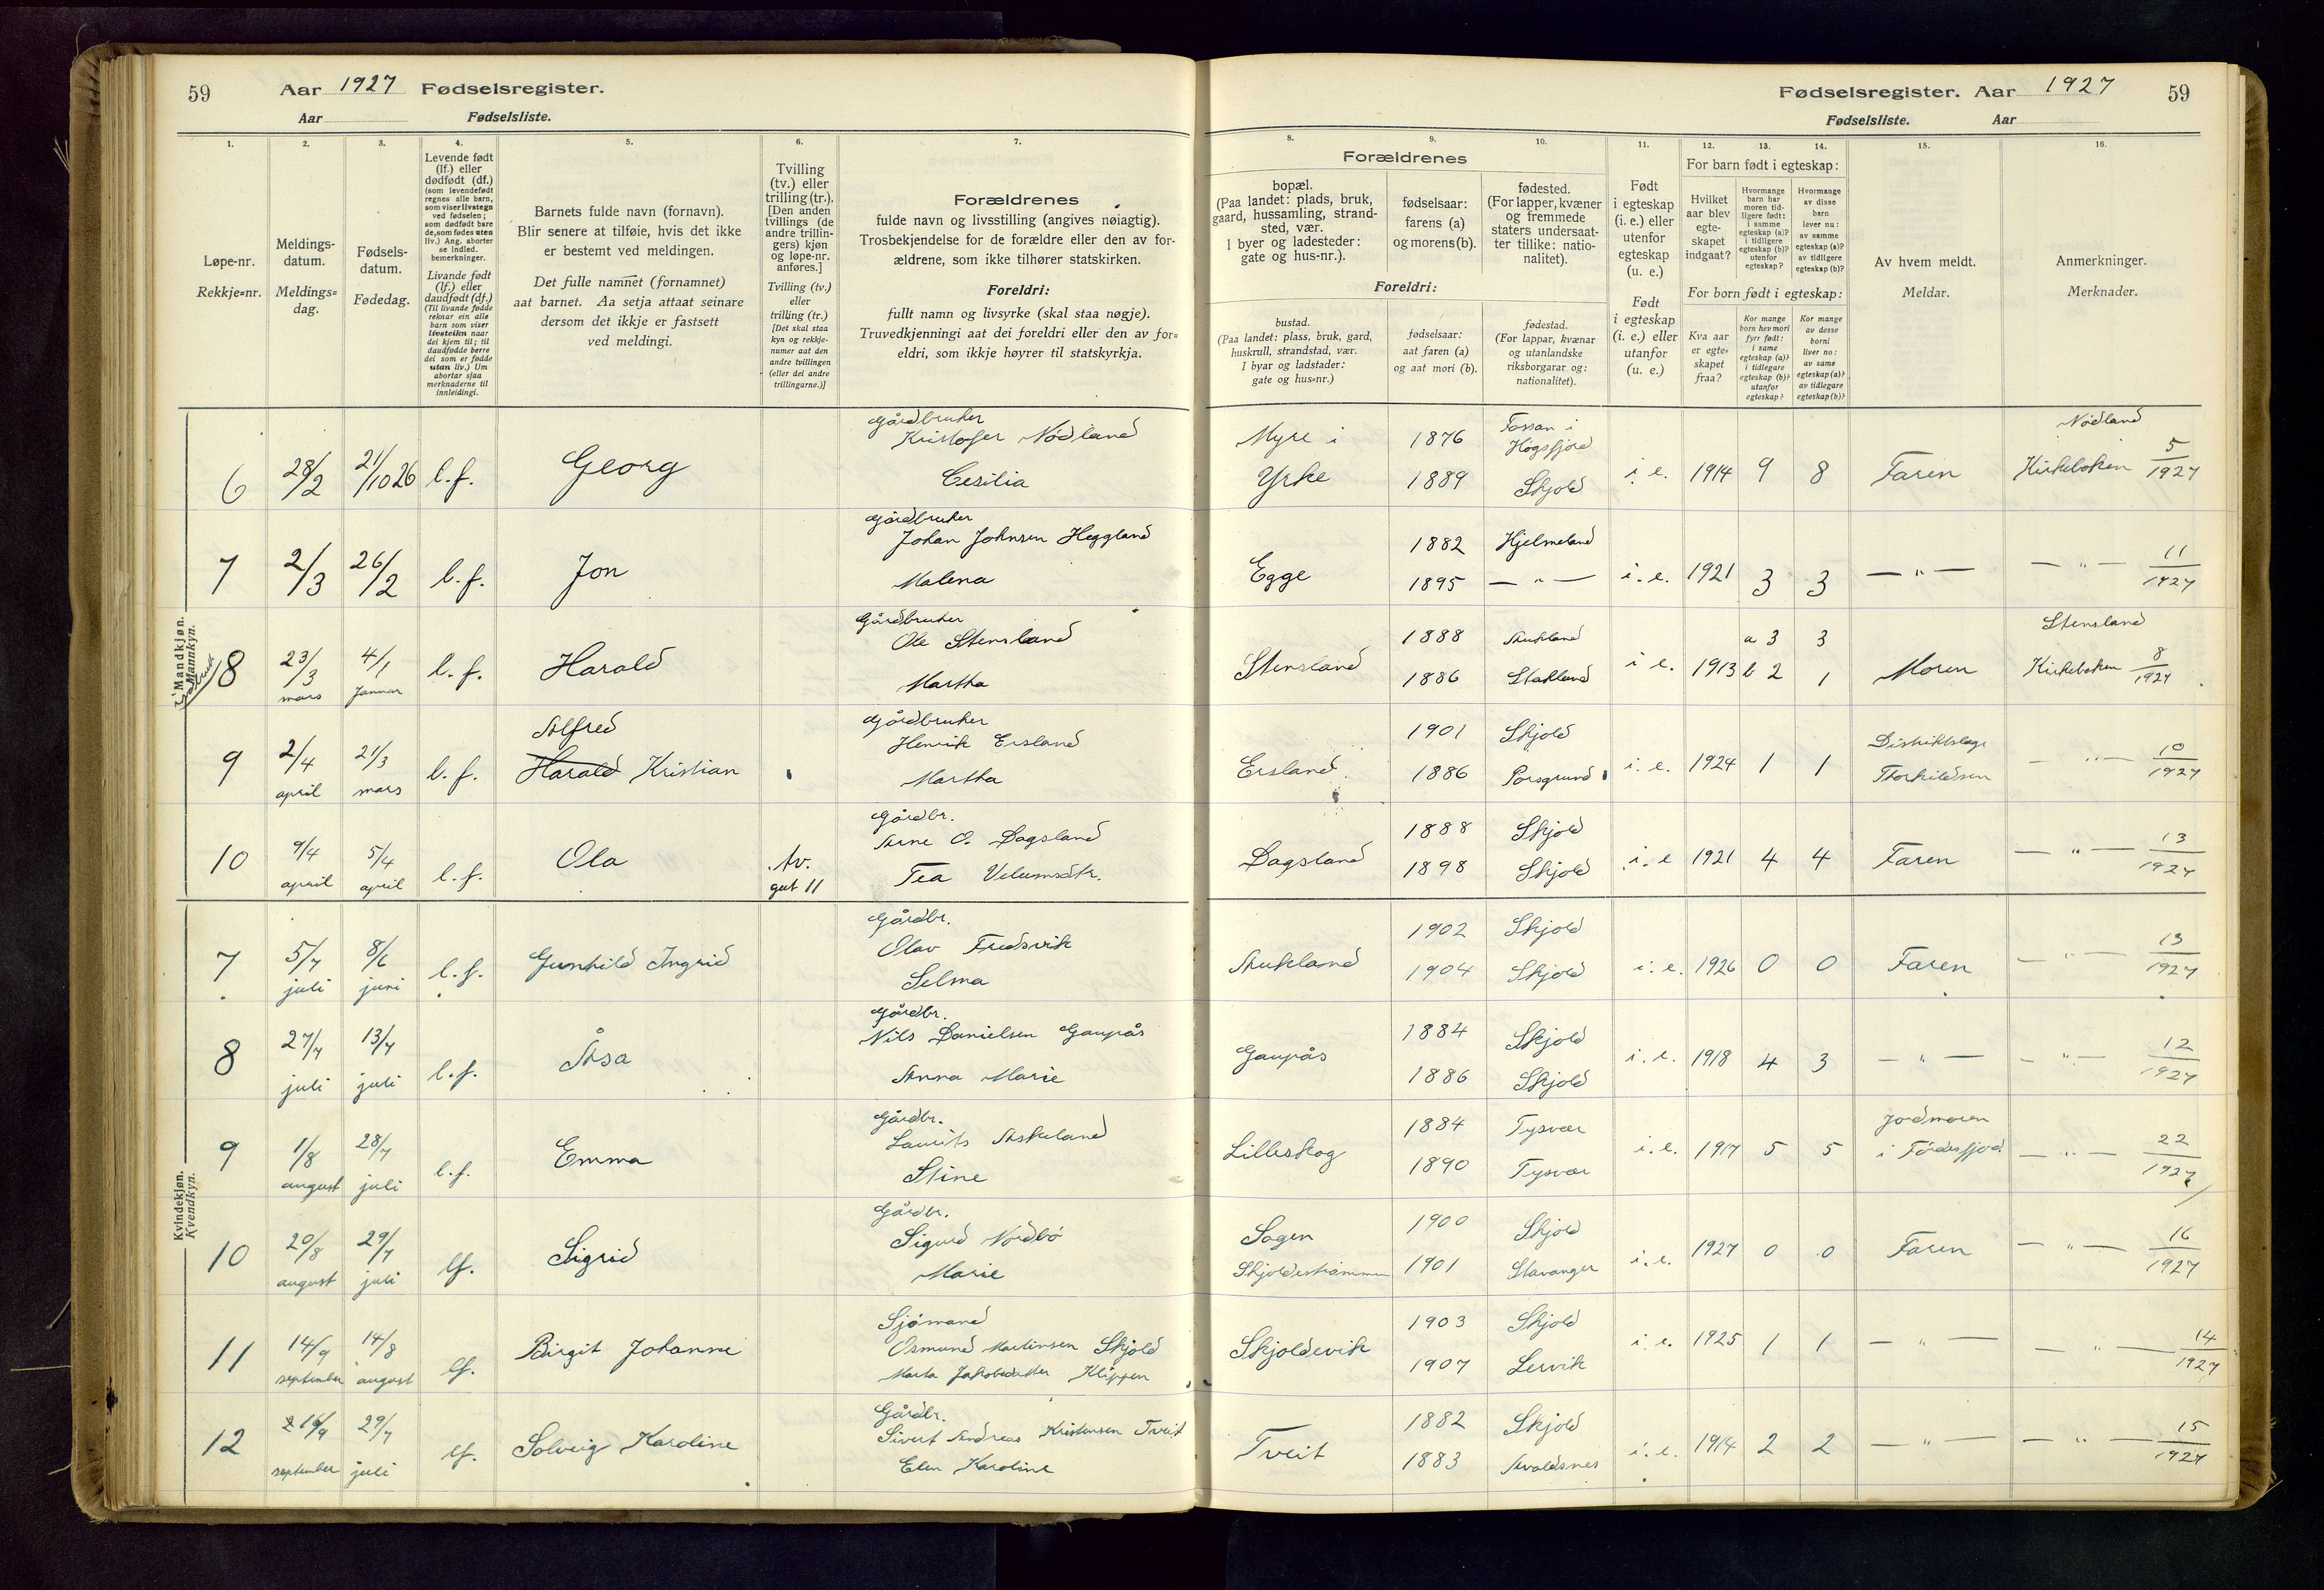 59 Aar 1927 Fødselsregister.
Aar Fødselsliste.
Fødselsregister. Aar 1927 59
Fødselsliste. Aar
1.
Løpe-nr.
Rekkje=nr.
2.
Meldings-
datum.
Meldings=
dag.
3.
Fødsels-
datum.
Fødedag.
4.
Levende født
(lf.) eller
dødfødt (df.)
(som levendefødt
regnes alle barn,
som viser livstegn
ved fødselen;
som dødfødt bare
de, som fødes uten
liv.) Ang. aborter
se indled.
bemerkninger.
Livande født
(lf.) eller
daudfødt (df.)
(Til livande fødde
reknar ein alle
barn som viser
livsteikn naar
dei kjem til; til
daudfødde berre
dei som er fødde
utan liv.) Um
abortar sjaa
merknaderne til
innleidingi.
5.
Barnets fulde navn (fornavn).
Blir senere at tilføie, hvis det ikke
er bestemt ved meldingen.
Det fulle namnet (fornamnet)
aat barnet. Aa setja attaat seinare
dersom det ikkje er fastsett
ved meldingi.
6.
Tvilling
(tv.) eller
trilling (tr.).
[Den anden
tvillings (de
andre trillin-
gers) kjøn
og løpe-nr.
anføres.]
Tvilling (tv.)
eller
trilling (tr.)
[Det skal staa
kyn og rekkje-
numer aat den
andre tvillingen
(eller dei andre
trillingarne.)]
7.
Forældrenes
fulde navn og livsstilling (angives nøiagtig).
Trosbekjendelse for de forældre eller den av for-
ældrene, som ikke tilhører statskirken.
Foreldri:
fullt namn og livsyrke (skal staa nøgje).
Truvedkjenningi aat dei foreldri eller den av for=
eldri, som ikkje høyrer til statskyrkja.
Forældrenes
8.
bopæl.
(Paa landet: plads, bruk,
gaard, hussamling, strand-
sted, vær.
I byer og ladesteder:
gate og hus-nr.).
9.
fødselsaar:
farens (a)
og morens (b).
10.
fødested.
(For lapper, kvæner
og fremmede
staters undersaat-
ter tillike: natio-
nalitet).
Foreldri:
bustad.
(Paa landet: plass, bruk, gard,
huskrull, strandstad, vær.
I byar og ladstader:
gate og hus=nr.)
fødselsaar:
aat faren (a)
og aat mori (b).
fødestad.
(For lappar, kvænar
og utanlandske
riksborgarar og:
nationalitet).
11.
Født
i egteskap
(i. e.) eller
utenfor
egteskap
(u. e.)
Født
i egteskap
(i. e.) eller
utanfor
(u. e.)
For barn født i egteskap:
12.
Hvilket
aar blev
egte-
skapet
indgaat?
13.
Hvormange
barn har
moren tid-
ligere født:
i samme
egteskap (a)?
i tidligere
egteskap (b)?
utenfor
egteskap?
14.
Hvormange
av disse
barn
lever nu:
av samme
egteskap (a)?
av tidligere
egteskap (b)?
For born født i egteskap:
Kva aar
er egte=
skapet
fraa?
Kor mange
born hev mori
fyrr født:
i same
egteskap (a)?
i tidlegare
egteskap (b)?
utanfor
egteskap?
Kor mange
av desse
borni
liver no:
av same
egteskap (a)?
av tidlegare
egteskap (b)?
15.
Av hvem meldt.
Meldar.
16.
Anmerkninger.
Merknader.
Mandkjøn.
Mannkyn.
6 28/2 21/10 26 l.f. Georg Gårdbruker Kristofer Nödland Cesilia Myre i Yrke 1876 1889 Fossan i Högsfjord Skjold i. e. 1914 9 8 Faren Nödland Kirkeboken 5/1927
7 2/3 26/2 l.f. Jon Gårdbruker Johan Johnsen Heggland Malena Egge 1882 1895 Hjelmeland — " — i. e. 1921 3 3 — " — — " — 11/1927
8 23/3 mars 4/1 Januar l.f. Harald Gårdbruker Ole Stensland Martha Stensland 1888 1886 Stakland i. e. 1913 a 3 3 b 2 1 Moren Stensland Kirkeboken 8/1927
9 2/4 april 21/3 mars l.f. Alfred Harald Kristian Gårdbruker Henrik Ersland Martha Ersland 1901 1886 Skjold Porsgrund i. e. 1924 1 1 Distriktslæge Thorkildsen — " — 10/1927
10 9/4 april 5/4 april l.f. Ola tv. gut 11 Gårdbr. Arne O. Dagsland Tea Dagsland 1888 1898 Skjold Skjold i. e 1921 4 4 Faren — " — 13/1927
Kvindekjøn.
Kvendkyn.
7 5/7 juli 8/6 juni l.f. Gunhild Ingrid Gårdbr. Olav Fredsvik Selma 1902 1904 Skjold Skjold i. e. 1926 0 0 Faren — " — 13/1927
8 27/7 juli 13/7 juli l.f. Åsa Gårdbr. Nils Danielsen Gaupås Anna Marie Gaupås 1884 1886 Skjold Skjold i. e. 1918 4 3 — " — — " — 12/1927
9 1/8 august 28/7 juli l.f. Emma Gårdbr. Laurits Askeland Stine Lilleskog 1884 1890 Tysvær Tysvær i. e. 1917 5 5 Jordmoren i Fördesfjord — " — 22/1927
10 20/8 august 29/7 juli lf. Sigrid Gårdbr. Sigurd Nordbö Marie Sagen Skjoldestrammen 1900 1901 Skjold Stavanger i. e. 1927 0 0 Faren — " — 16/1927
11 14/9 september 14/8 august lf. Birgit Johanne Sjömand Osmund Martinsen Skjold Marta Jakobsdatter Klippen Skjoldevik 1903 1907 Skjold Lervik i. e. 1925 1 1 — " — — " — 14/1927
12 16/9 september 29/7 juli lf. Solveig Karoline Gårdbr. Sivert Andreas Kristensen Tveit Elen Karoline Tveit 1882 1883 Skjold Avaldsnes i. e. 1914 2 2 — " — — " — 15/1927